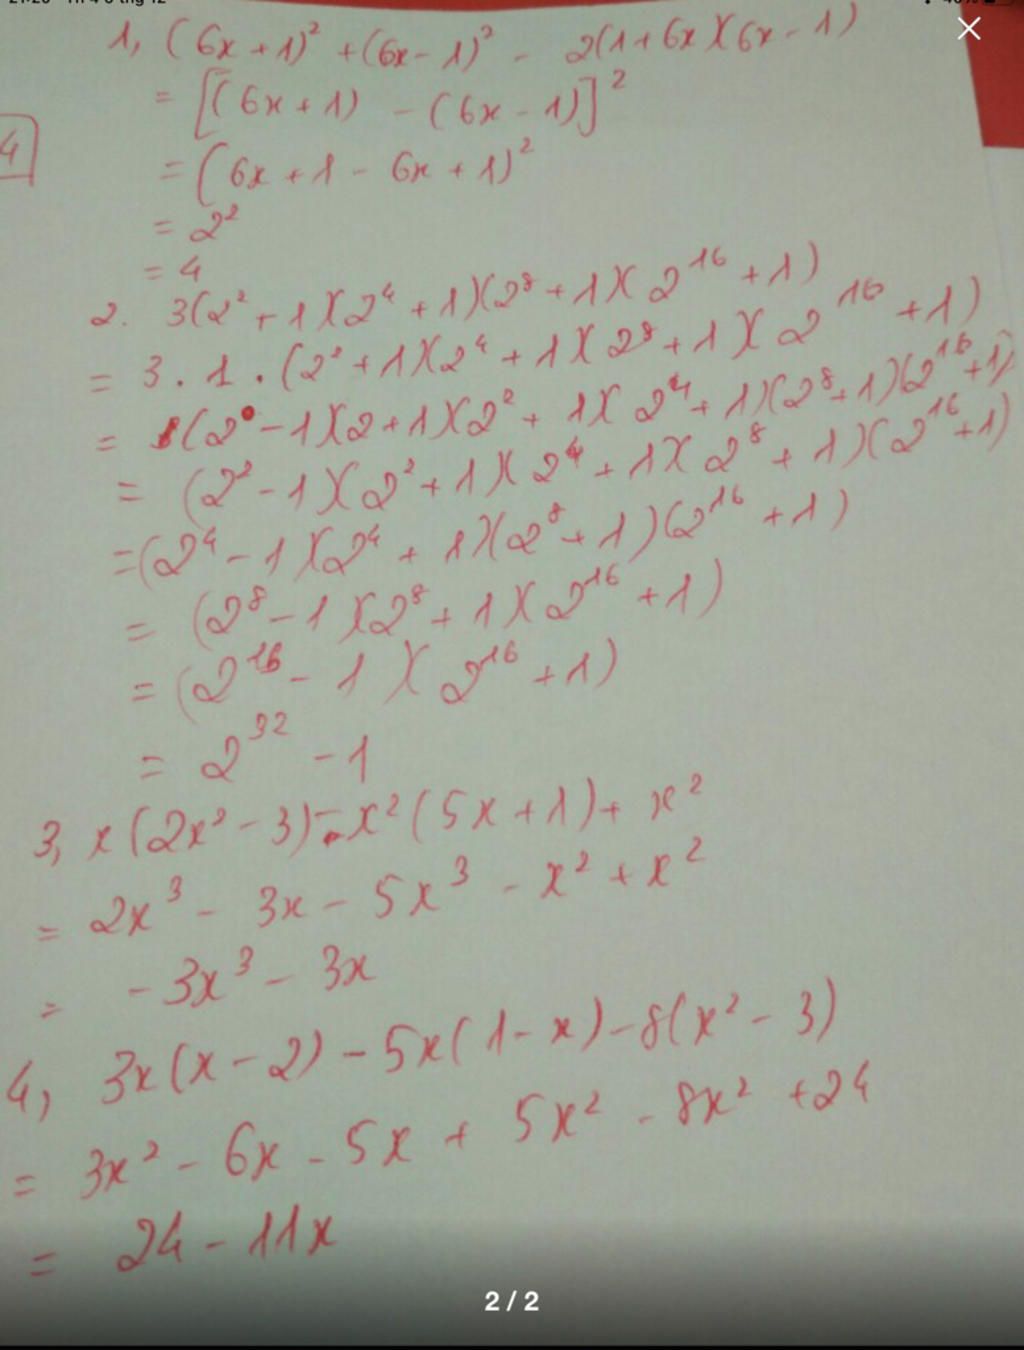 1, (6x+1)² + (6x-1)² - 2(1+6x)(6x-1)
= [(6x+1) - (6x-1)]²
4
= (6x+1-6x+1)²
= 2²
= 4
2. 3(2²+1)(2⁴+1)(2⁸+1)(2¹⁶+1)
= 3.1.(2²+1)(2⁴+1)(2⁸+1)(2¹⁶+1)
= (2-1)(2+1)(2²+1)(2⁴+1)(2⁸+1)(2¹⁶+1)
= (2²-1)(2²+1)(2⁴+1)(2⁸+1)(2¹⁶+1)
= (2⁴-1)(2⁴+1)(2⁸+1)(2¹⁶+1)
= (2⁸-1)(2⁸+1)(2¹⁶+1)
= (2¹⁶-1)(2¹⁶+1)
= 2³²-1
3, x(2x²-3)-x²(5x+1)+x²
= 2x³-3x-5x³-x²+x²
= -3x³-3x
4, 3x(x-2)-5x(1-x)-8(x²-3)
= 3x²-6x-5x+5x²-8x²+24
= 24-11x
2 / 2